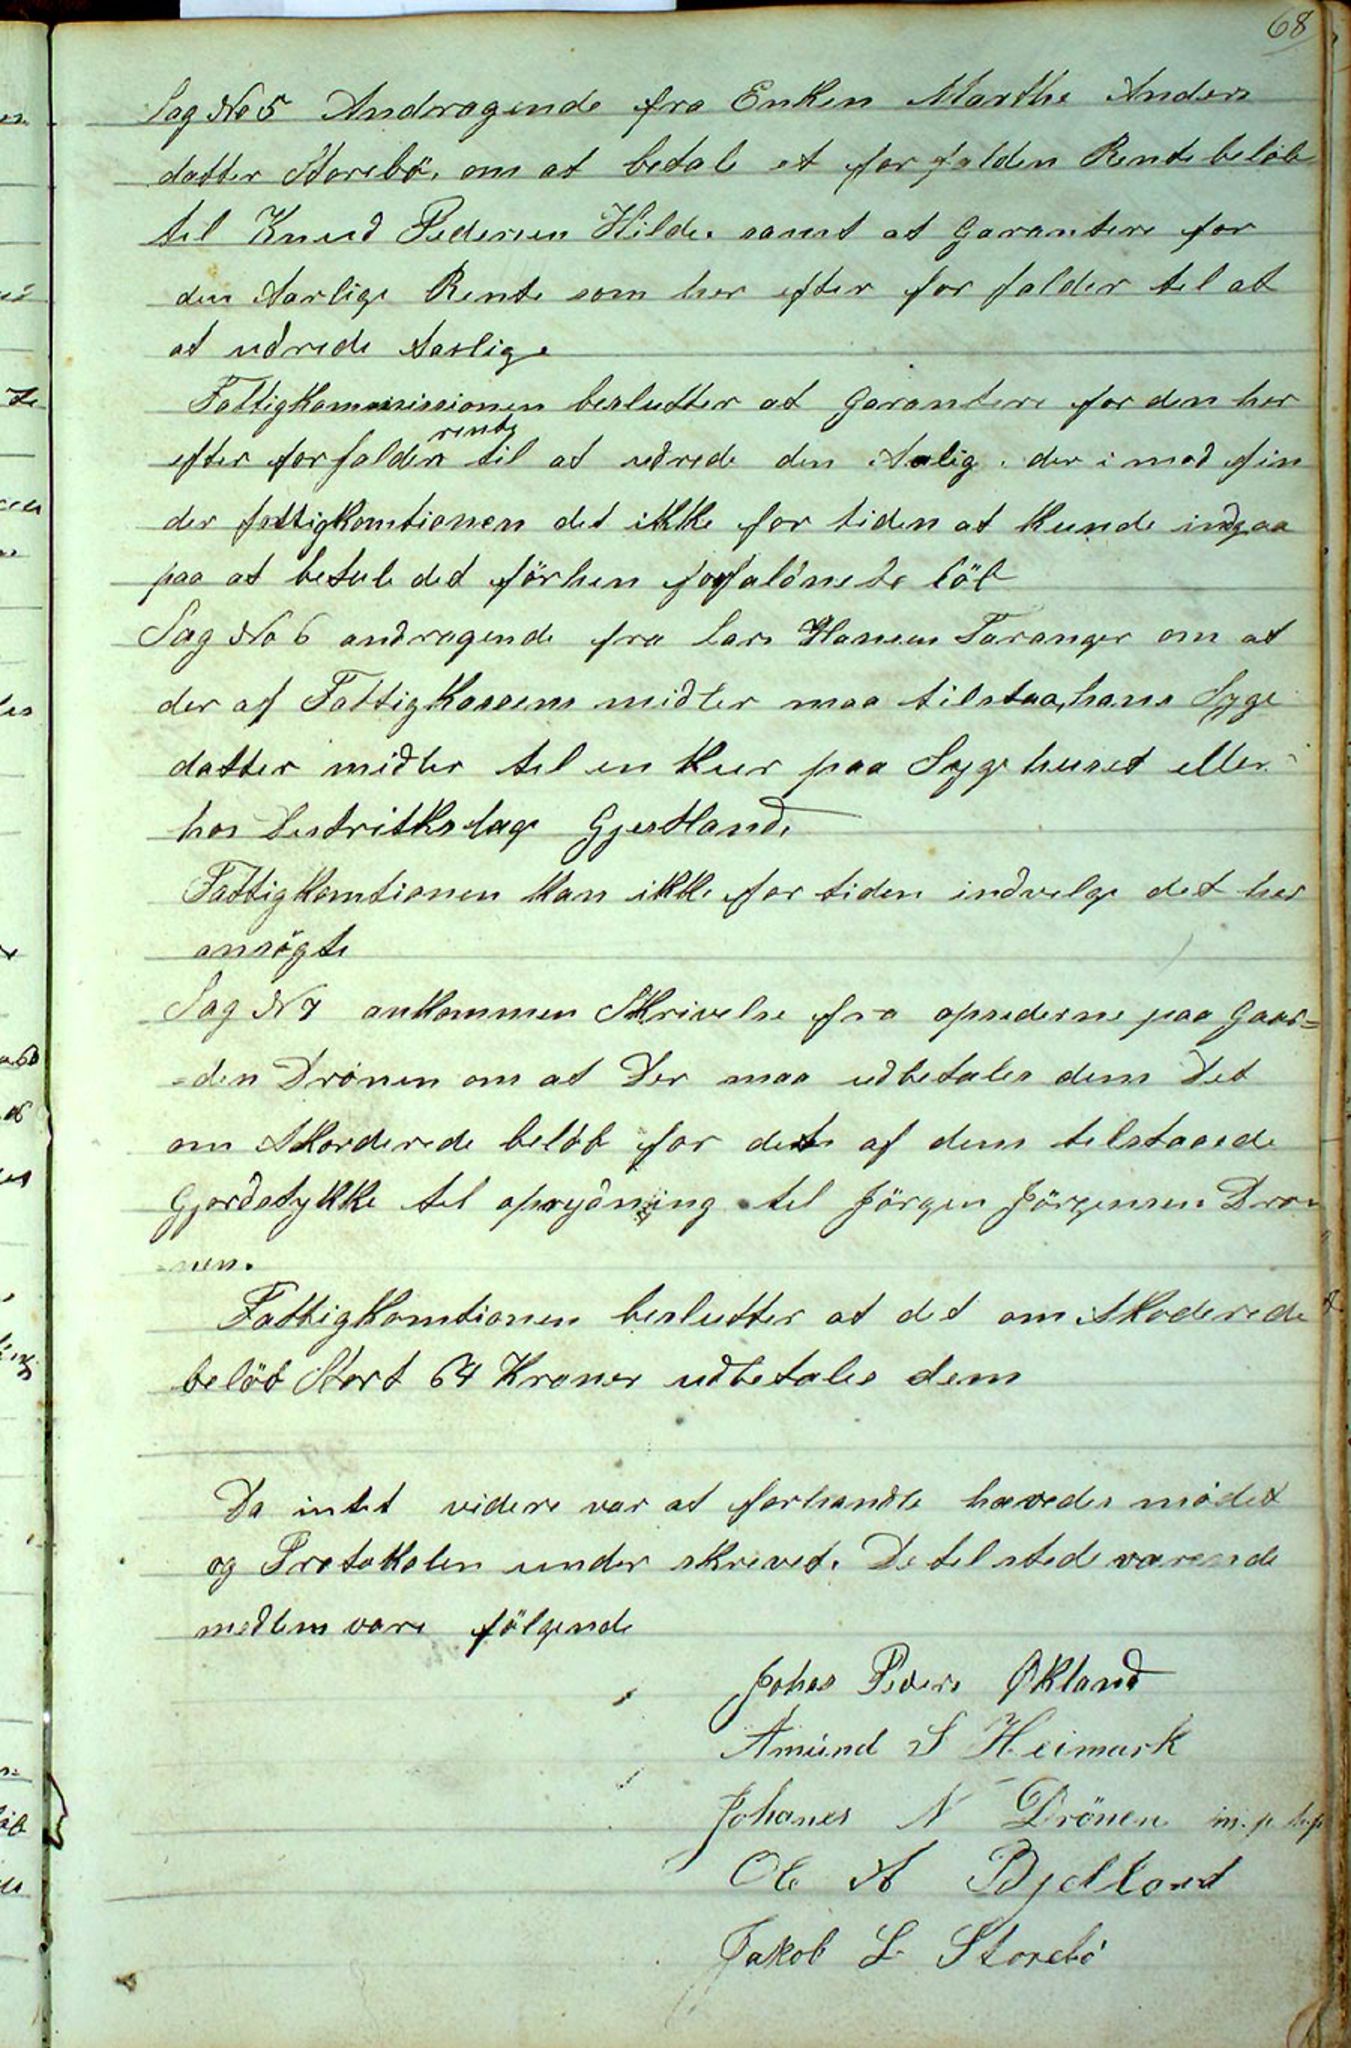 68
Sag No 5 Andragende fra Enken Marthe Anders
datter Storebö, om at betale et forfalden Rentebelöb
til Knud Pedersen Hilde. samt at Garantere for
den Aarlige Rente som her efter for falder til at
at udrede Aarlige
Fattigkommissionen beslutter at Garantere for den her
rente
efter forfalden til at udrede den Aalig. der i mod fin
der fattigkomtionen det ikke for tiden at kunde indgaa
paa at betale det förhen forfaldnebe löb
Sag No 6 andragende fra Lars Hansen Taranger om at
der af Fattigkassens midler maa tilstaa, hans Syge
datter midler til en Kur paa Sygehuset eller
hos Distriktslæge Gjestland.
Fattigkomtionen kan ikke for tiden indvelge det her
ansögte
Sag N 7 ankommen Skrivelse fra opsederne paa Gaar=
=den Drönen om at Der maa udbetales dem Det
om Akorderede belöb for dets af dem tilstaaede
Gjordstykke til oprydning til Jörgen Jörgensen Drö
=nen.
Fattigkomtionen beslutter at det om Akoderede
belöb Stort 64 Kroner udbetales dem
Da intet videre var at forhandle hævedes mödet
og Protokolen under skrevet. De tilstede værende
medlem vare fölgende
Johas Peders Økland
Amund S Heimark
Johanes N Drönen m. p. p.
Ole A Bjelland
Jakob L. Storebö